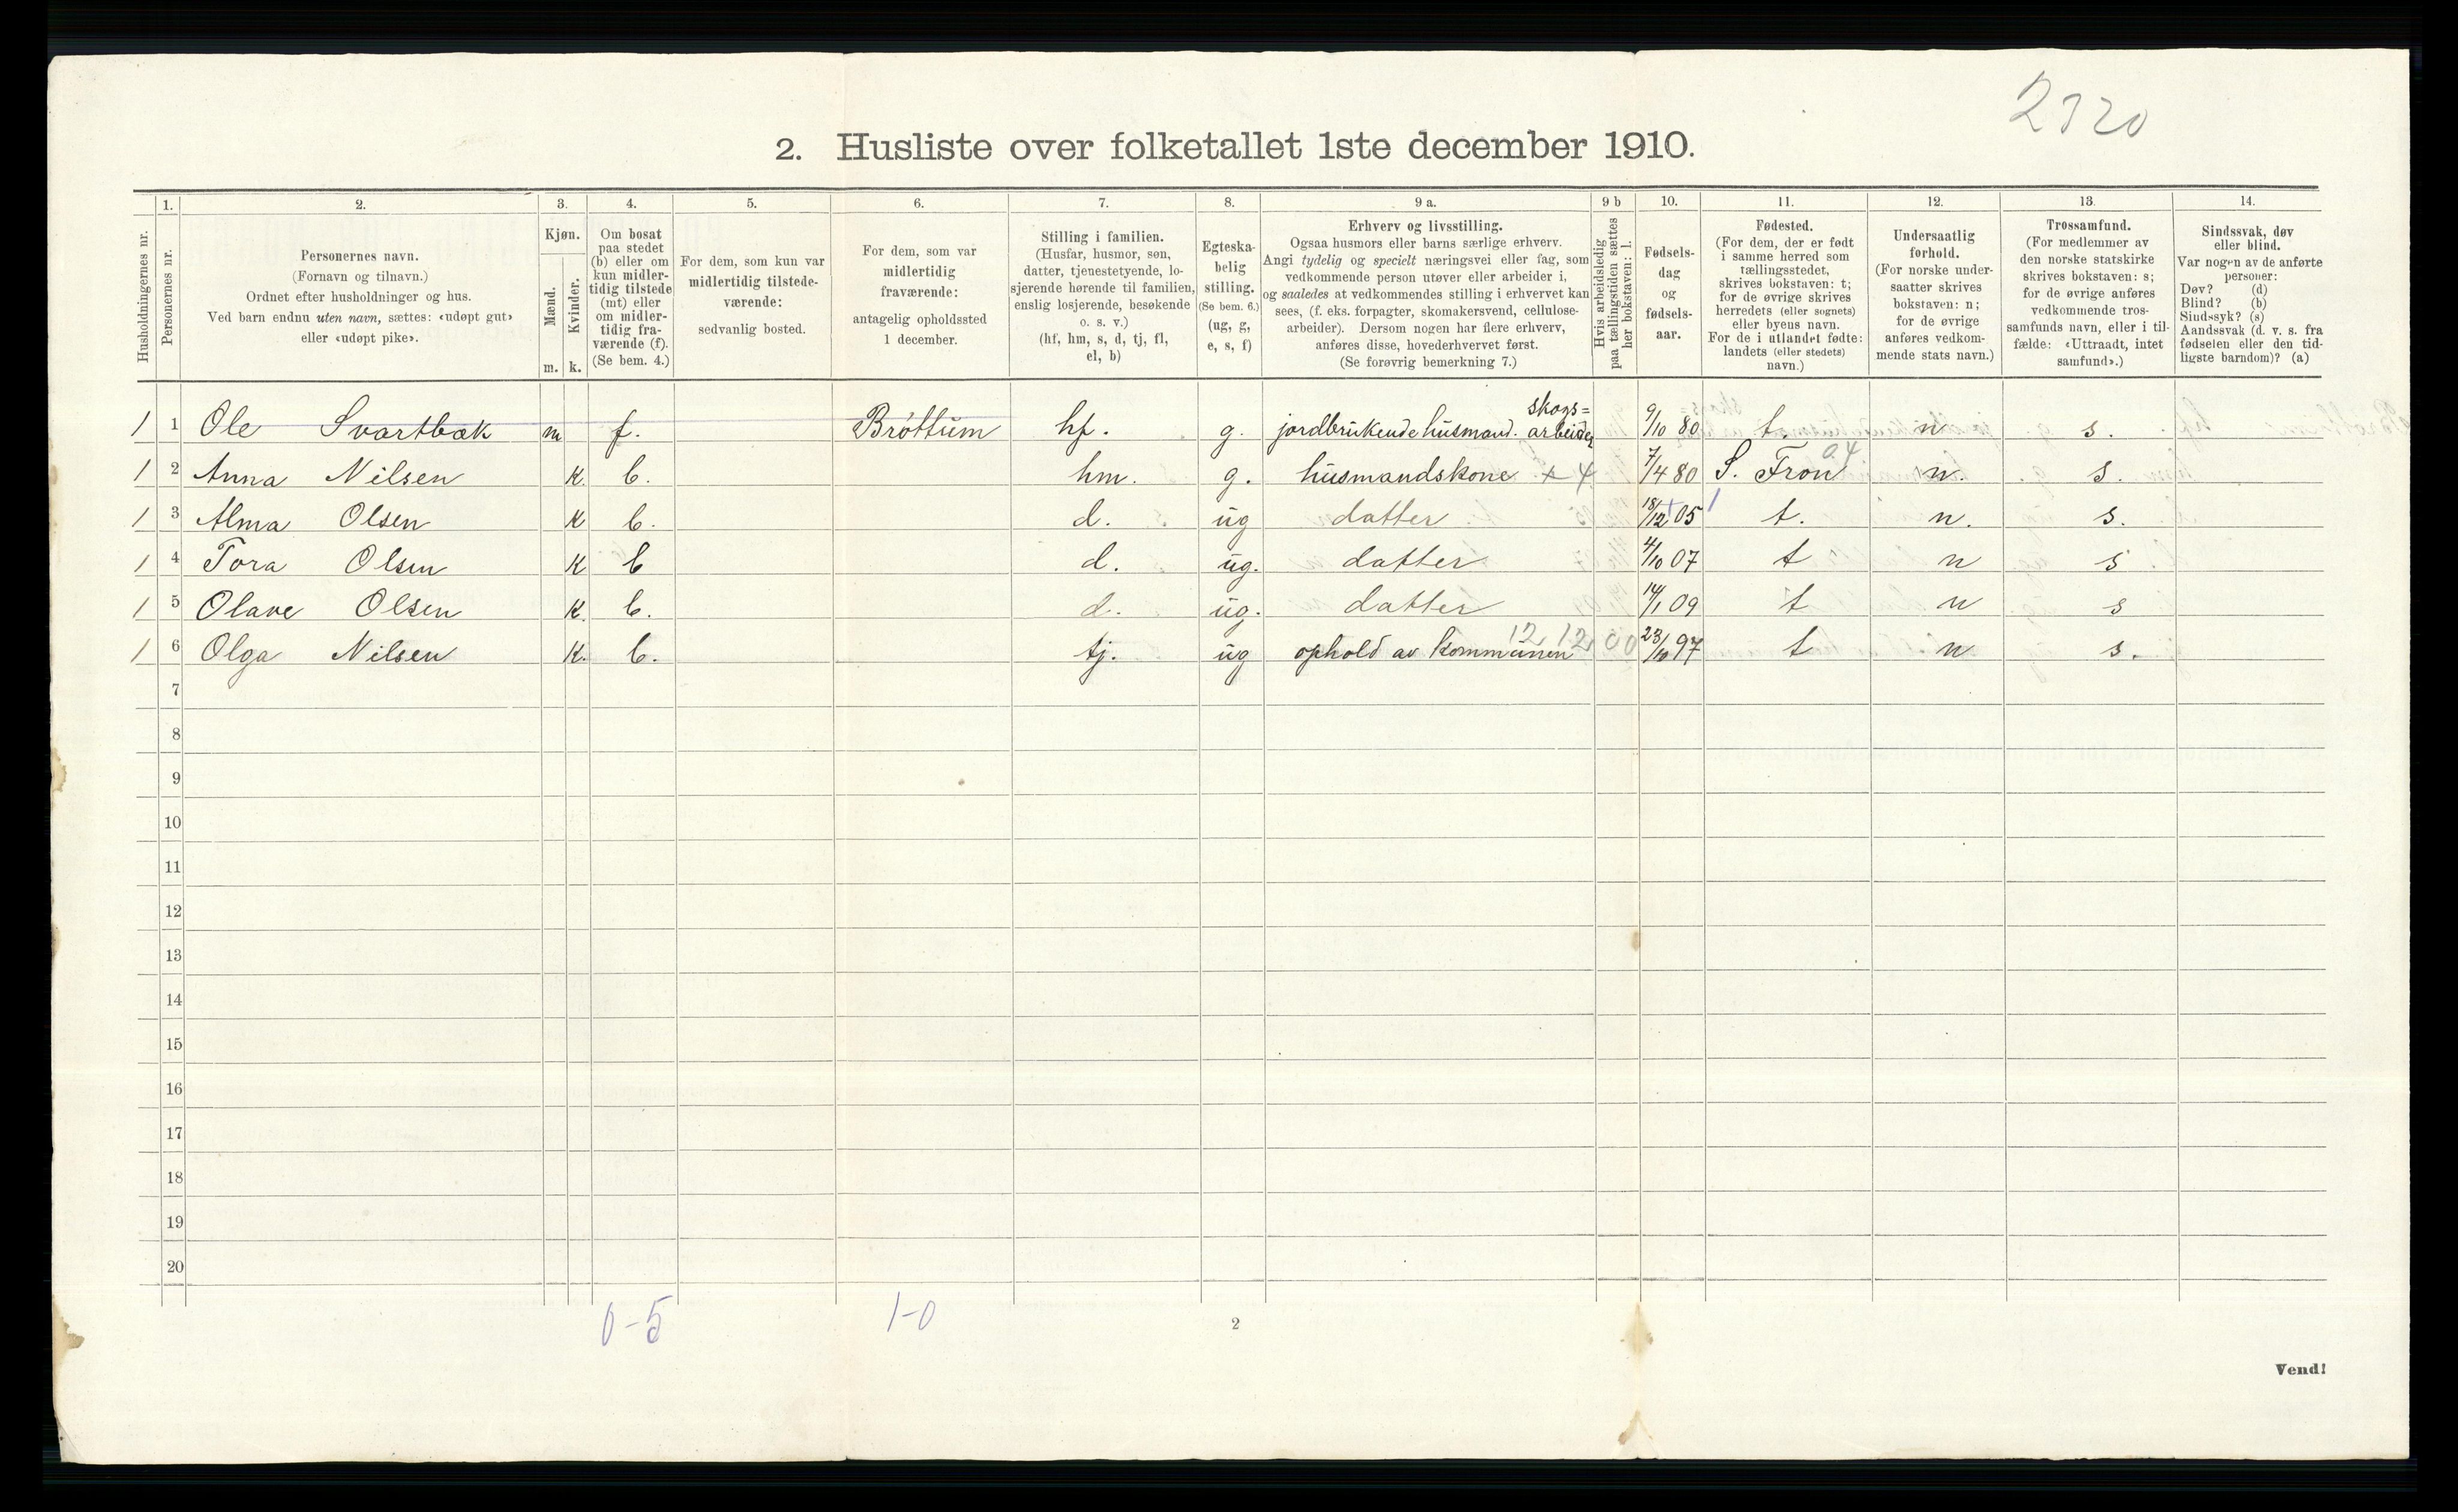 2320
2. Husliste over folketallet 1ste december 1910.
Husholdningernes nr.
1.
Personernes nr.
2.
Personernes navn.
(Fornavn og tilnavn.)
Ordnet efter husholdninger og hus.
Ved barn endnu uten navn, sættes: «udøpt gut»
eller «udøpt pike».
3.
Kjøn.
Mænd.
Kvinder.
m. k.
4.
Om bosat
paa stedet
(b) eller om
kun midler-
tidig tilstede
(mt) eller
om midler-
tidig fra-
værende (f).
(Se bem. 4.)
5.
For dem, som kun var
midlertidig tilstede-
værende:
sedvanlig bosted.
6.
For dem, som var
midlertidig
fraværende:
antagelig opholdssted
1 december.
7.
Stilling i familien.
(Husfar, husmor, søn,
datter, tjenestetyende, lo-
sjerende hørende til familien,
enslig losjerende, besøkende
o. s. v.)
(hf, hm, s, d, tj, fl,
el, b)
8.
Egteska-
belig
stilling.
(Se bem. 6.)
(ug, g,
e, s, f)
9 a.
Erhverv og livsstilling.
Ogsaa husmors eller barns særlige erhverv.
Angi tydelig og specielt næringsvei eller fag, som
vedkommende person utøver eller arbeider i,
og saaledes at vedkommendes stilling i erhvervet kan
sees, (f. eks. forpagter, skomakersvend, cellulose-
arbeider). Dersom nogen har flere erhverv,
anføres disse, hovederhvervet først.
(Se forøvrig bemerkning 7.)
9 b
Hvis arbeidsledig
paa tællingstiden sættes
her bokstaven: l.
10.
Fødsels-
dag
og
fødsels-
aar.
11.
Fødested.
(For dem, der er født
i samme herred som
tællingsstedet,
skrives bokstaven: t;
for de øvrige skrives
herredets (eller sognets)
eller byens navn.
For de i utlandet fødte:
landets (eller stedets)
navn.)
12.
Undersaatlig
forhold.
(For norske under-
saatter skrives
bokstaven: n;
for de øvrige
anføres vedkom-
mende stats navn.)
13.
Trossamfund.
(For medlemmer av
den norske statskirke
skrives bokstaven: s;
for de øvrige anføres
vedkommende tros-
samfunds navn, eller i til-
fælde: «Uttraadt, intet
samfund».)
14.
Sindssvak, døv
eller blind.
Var nogen av de anførte
personer:
Døv? (d)
Blind? (b)
Sindssyk? (s)
Aandssvak (d. v. s. fra
fødselen eller den tid-
ligste barndom)? (a)
1 1 Ole Svartbæk m f. Brøttum hf. g. jordbrukende husmand. skogs= arbeider 9/10 80 t. n s.
1 2 Anna Nilsen K. b. hm. g. husmandskone 7/4 80 S. Fron 04 n. s.
1 3 Alma Olsen K b. d. ug datter 18/12 05 t. n. s.
1 4 Tora Olsen K b d. ug. datter 4/10 07 t n s
1 5 Olave Olsen K. b. d. ug. datter 14/1 09 t n s
1 6 Olga Nilsen K. b. tj. ug ophold av kommunen 12 12 00 23/10 97 t n s.
7
8
9
10
11
12
13
14
15
16
17
18
19
20
0-5 1-0
2
Vend!